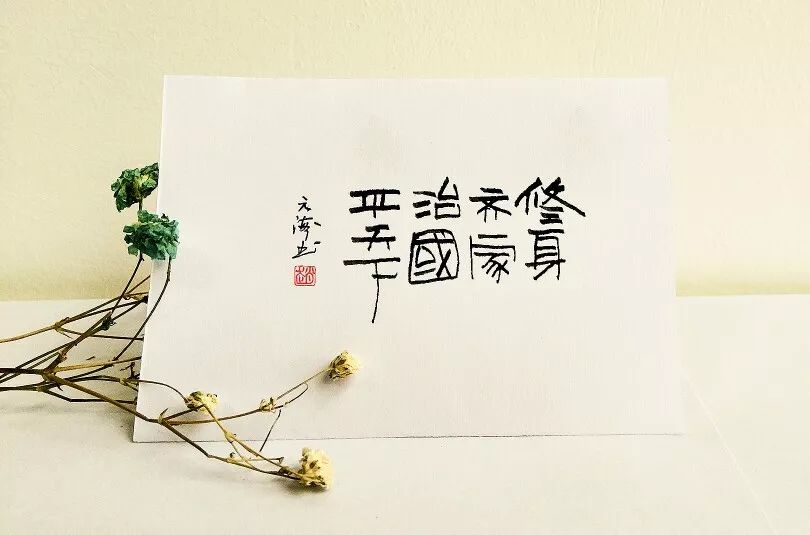 修身
齐家
治國
平天下
书